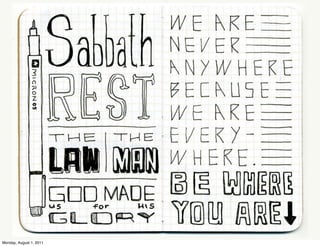 MICRON 05
Sabbath
REST
THE THE
LAW MAN
GOD MADE
us for HIS
GLORY
WE ARE
NEVER
ANYWHERE
BECAUSE
WE ARE
EVERY-
WHERE.
BE WHERE
YOU ARE
Monday, August 1, 2011